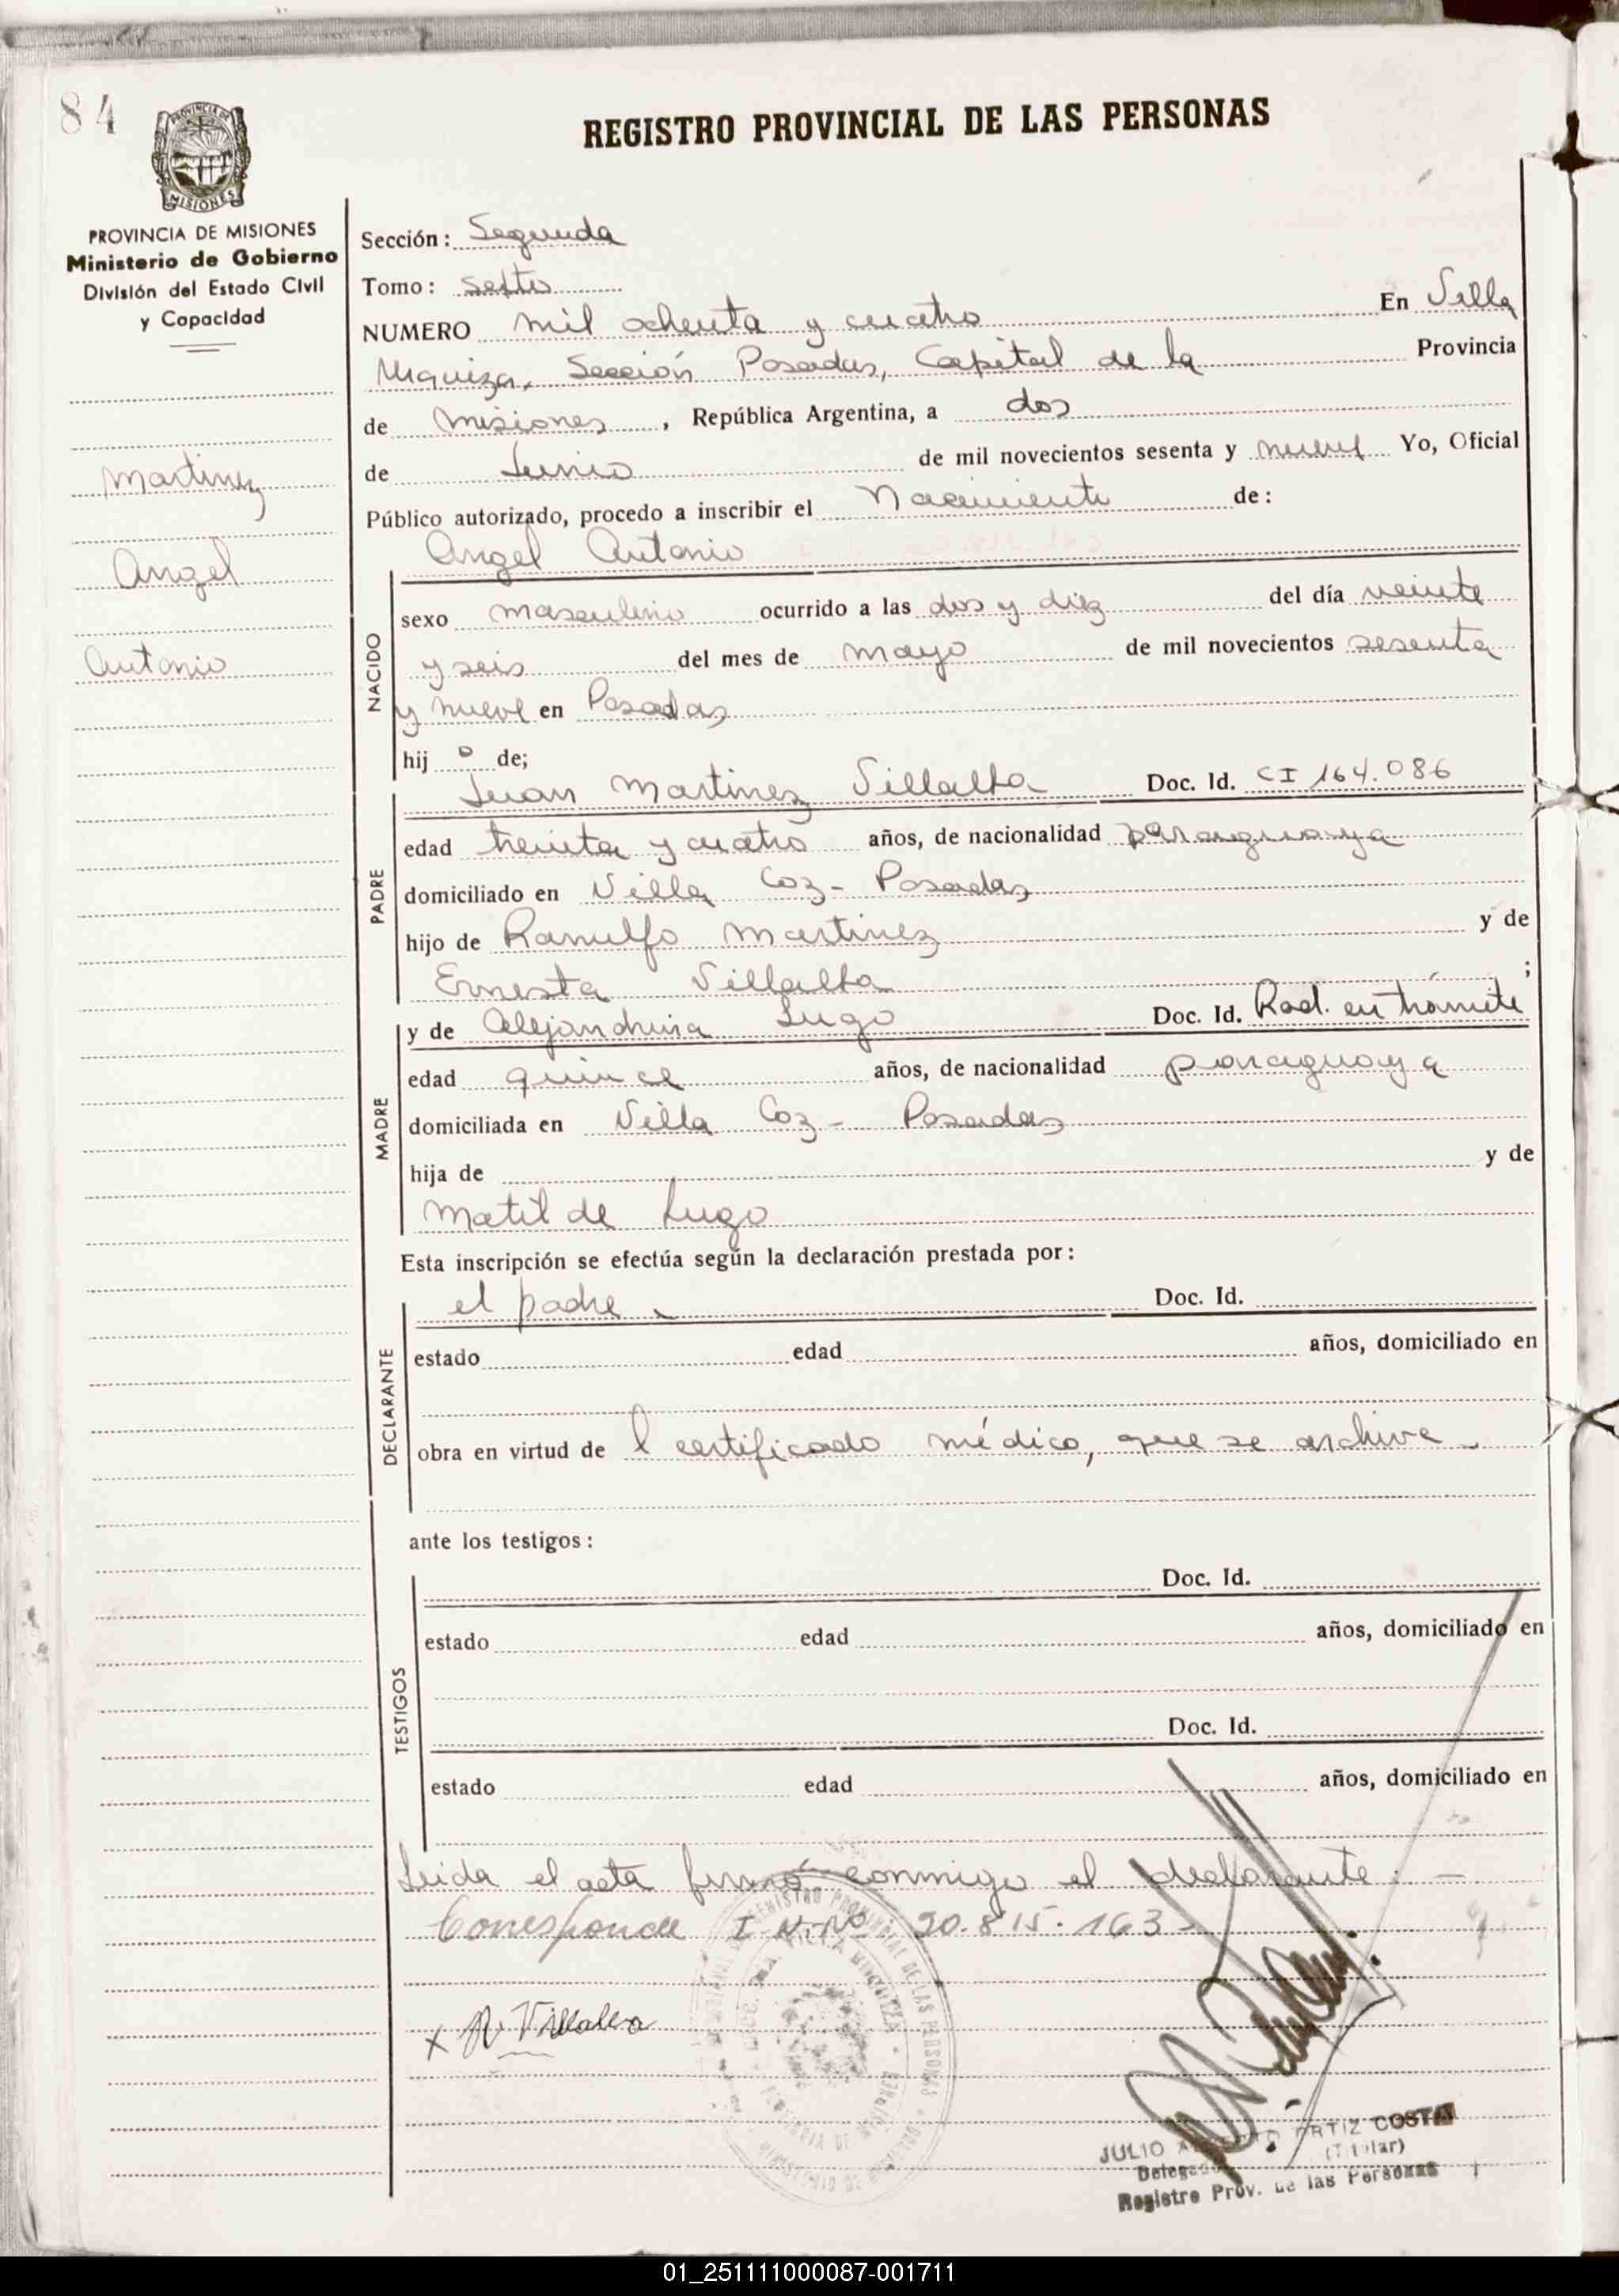 84
REGISTRO PROVINCIAL DE LAS PERSONAS
MISIONES
PROVINCIA DE MISIONES
Ministerio de Gobierno
División del Estado Civil
y Capacidad
Martinez
Angel
Antonio
Sección: Segunda
Tomo: sexto
NUMERO mil ochenta y cuatro En Villa
Urquiza, Sección Posadas, Capital de la Provincia
de Misiones, República Argentina, a dos
de Junio de mil novecientos sesenta y nueve Yo, Oficial
Público autorizado, procedo a inscribir el Nacimiento de:
Angel Antonio
NACIDO
sexo masculino ocurrido a las dos y diez del día veinte
y seis del mes de mayo de mil novecientos sesenta
y nueve en Posadas
hijo de;
PADRE
Juan Martinez Villalba Doc. Id. CI 164.086
edad treinta y cuatro años, de nacionalidad paraguaya
domiciliado en Villa Coz - Posadas
hijo de Ranulfo Martinez y de
Ernesta Villalba ;
MADRE
y de Alejandrina Lugo Doc. Id. Rad. en trámite
edad quince años, de nacionalidad paraguaya
domiciliada en Villa Coz - Posadas
hija de y de
Matilde Lugo
Esta inscripción se efectúa según la declaración prestada por:
DECLARANTE
el padre. Doc. Id.
estado edad años, domiciliado en
obra en virtud de l certificado médico, que se archiva -
ante los testigos:
TESTIGOS
Doc. Id.
estado edad años, domiciliado en
Doc. Id.
estado edad años, domiciliado en
Leida el acta firmó conmigo el declarante: -
Corresponde I.N.Nº 20.815.163 -
x Villalba
JULIO ORTIZ COSTA
(Titular)
Delegado
Registro Prov. de las Personas
01_251111000087-001711